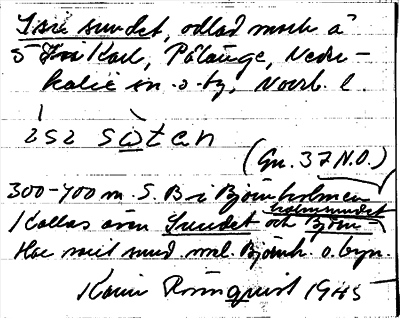 Isĭe sundet, odlad mark å
5 Karl, Pålänge, Neder-
kalix sn. o ty, Norrb. l.
ɩsɩ sωtən
(Gn. 37 N.O.)
300-400 m. S. B i Björnholmen
Kallas även Sundet och Björn-
holmsundet
Har varit sund ml. Björnh. o. byn.
Karin Rönnquist 1945